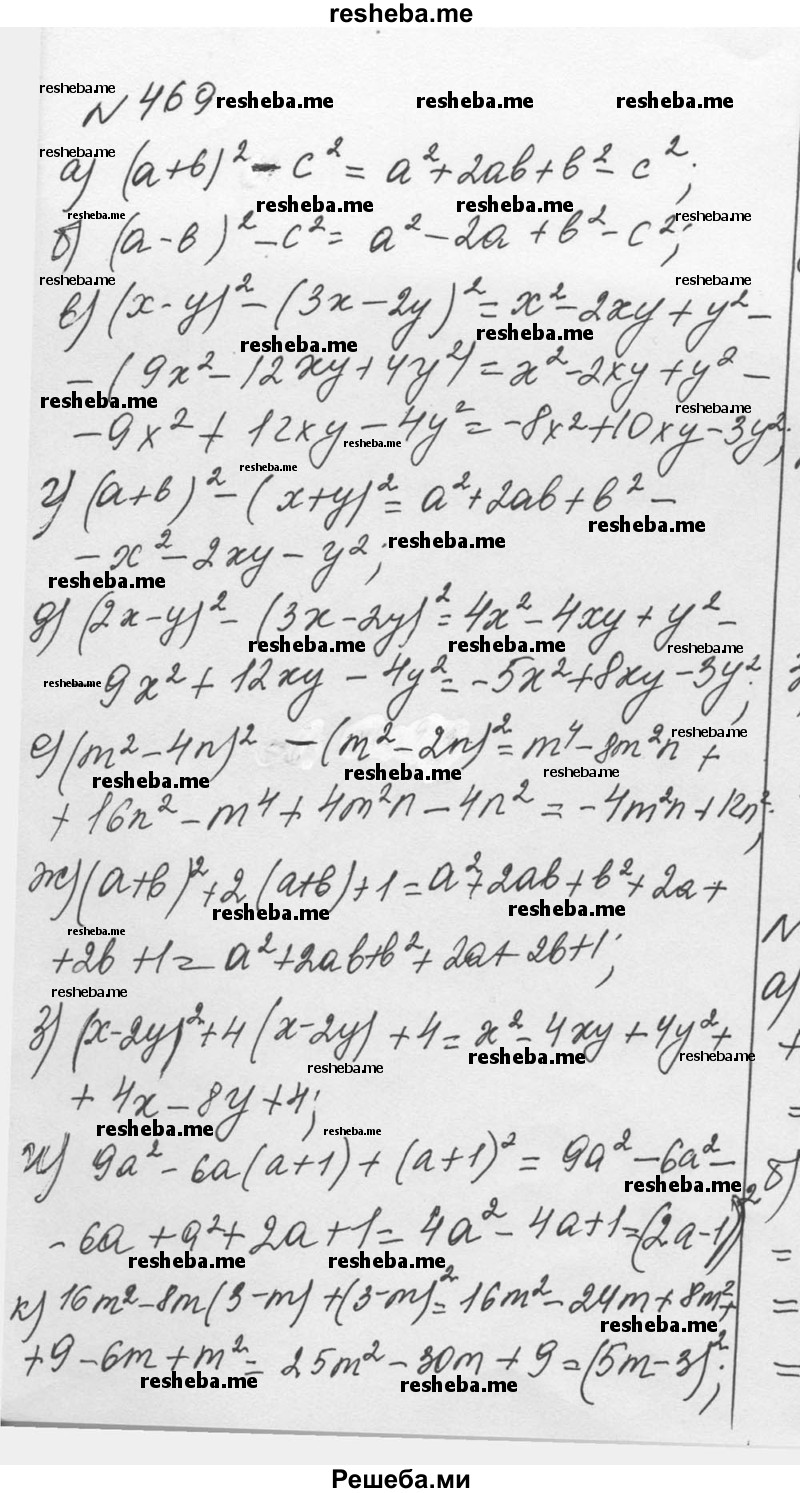 resheba.me
№ 469
а) (a+b)² - c² = a²+2ab+b²- c²;
б) (a-b)²-c²= a²-2a+b²-c²;
в) (x-y)²-(3x-2y)²=x²-2xy+y²-
-(9x²-12xy+4y²)=x²-2xy+y²-
-9x²+12xy-4y²=-8x²+10xy-3y²;
г) (a+b)²-(x+y)²=a²+2ab+b²-
-x²-2xy-y²;
д) (2x-y)²-(3x-2y)²=4x²-4xy+y²-
9x²+12xy-4y²=-5x²+8xy-3y²;
е) (m²-4n)² -(m²-2n)²=m⁴-8m²n+
+16n²-m⁴+4m²n-4n²=-4m²n+12n²;
ж) (a+b)²+2(a+b)+1=a²+2ab+b²+2a+
+2b+1=a²+2ab+b²+2a+2b+1;
з) (x-2y)²+4(x-2y)+4=x²-4xy+4y²+
+4x-8y+4;
и) 9a²-6a(a+1)+(a+1)²=9a²-6a²-
-6a+a²+2a+1=4a²-4a+1=(2a-1)²
к) 16m²-8m(3-m)+(3-m)²=16m²-24m+8m²+
+9-6m+m²=25m²-30m+9=(5m-3)²;
Решеба.ми